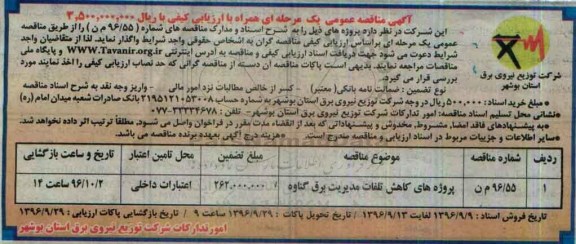 آگهی مناقصه عمومی یک مرحله ای همراه با ارزیابی کیفی با ریال ۳,۵۰۰,۰۰۰,۰۰۰
این شرکت در نظر دارد پروژه های ذیل را به شرح اسناد و مدارک مناقصه های شماره (۹۶/۵۵ م ن) را از طریق مناقصه
عمومی یک مرحله ای براساس ارزیابی کیفی مناقصه گران به اشخاص حقوقی واجد شرایط واگذار نماید. لذا از متقاضیان واجد
شرایط دعوت می شود جهت دریافت اسناد ارزیابی کیفی و مناقصه به آدرس اینترنتی WWW.Tavanir.org.ir و پایگاه ملی
مناقصات مراجعه نمایند. بدیهی است پاکات مناقصه آن دسته از مناقصه گرانی که حد نصاب ارزیابی کیفی را اخذ نمایند مورد
بررسی قرار می گیرد.
شرکت توزیع نیروی برق
استان بوشهر
نوع تضمین : ضمانت نامه بانکی( معتبر) - کسر از خالص مطالبات نزد امور مالی - واریز وجه نقد به شرح اسناد مناقصه
مبلغ خرید اسناد: ۵۰۰,۰۰۰ ریال در وجه شرکت توزیع نیروی برق استان بوشهر به شماره حساب ۲۱۹۵۱۲۱۰۵۳۰۰۸ بانک صادرات شعبه میدان امام (ره)
نشانی محل تسلیم اسناد مناقصه: امور تدارکات شرکت توزیع نیروی برق استان بوشهر- تلفن : ۳۳۳۳۴۶۷۸-۰۷۷
به پیشنهادهای فاقد امضا، مشروط، مخدوش و پیشنهاداتی که بعد از انقضاء مدت مقرر در فراخوان واصل می شود، مطلقا ترتیب اثر داده نخواهد شد.
سایر اطلاعات و جزییات مربوط در اسناد ارزیابی و مناقصه مندرج است. هزینه درج آگهی بعهده برنده مناقصه می باشد.
ردیف شماره مناقصه موضوع مناقصه مبلغ تضمین محل تامین اعتبار تاریخ و ساعت بازگشایی
۱ ۹۶/۵۵ م ن پروژه های کاهش تلفات مدیریت برق گناوه ۲۶۲.۰۰۰.۰۰۰ اعتبارات داخلی ۹۶/۱۰/۲ ساعت ۱۴
تاریخ فروش اسناد : ۱۳۹۶/۹/۹ لغایت ۱۳۹۶/۹/۱۳ / تاریخ تحویل پاکات : ۱۳۹۶/۹/۲۹ ساعت ۹ / تاریخ بازگشایی پاکات ارزیابی : ۱۳۹۶/۹/۲۹
امور تدارکات شرکت توزیع نیروی برق استان بوشهر